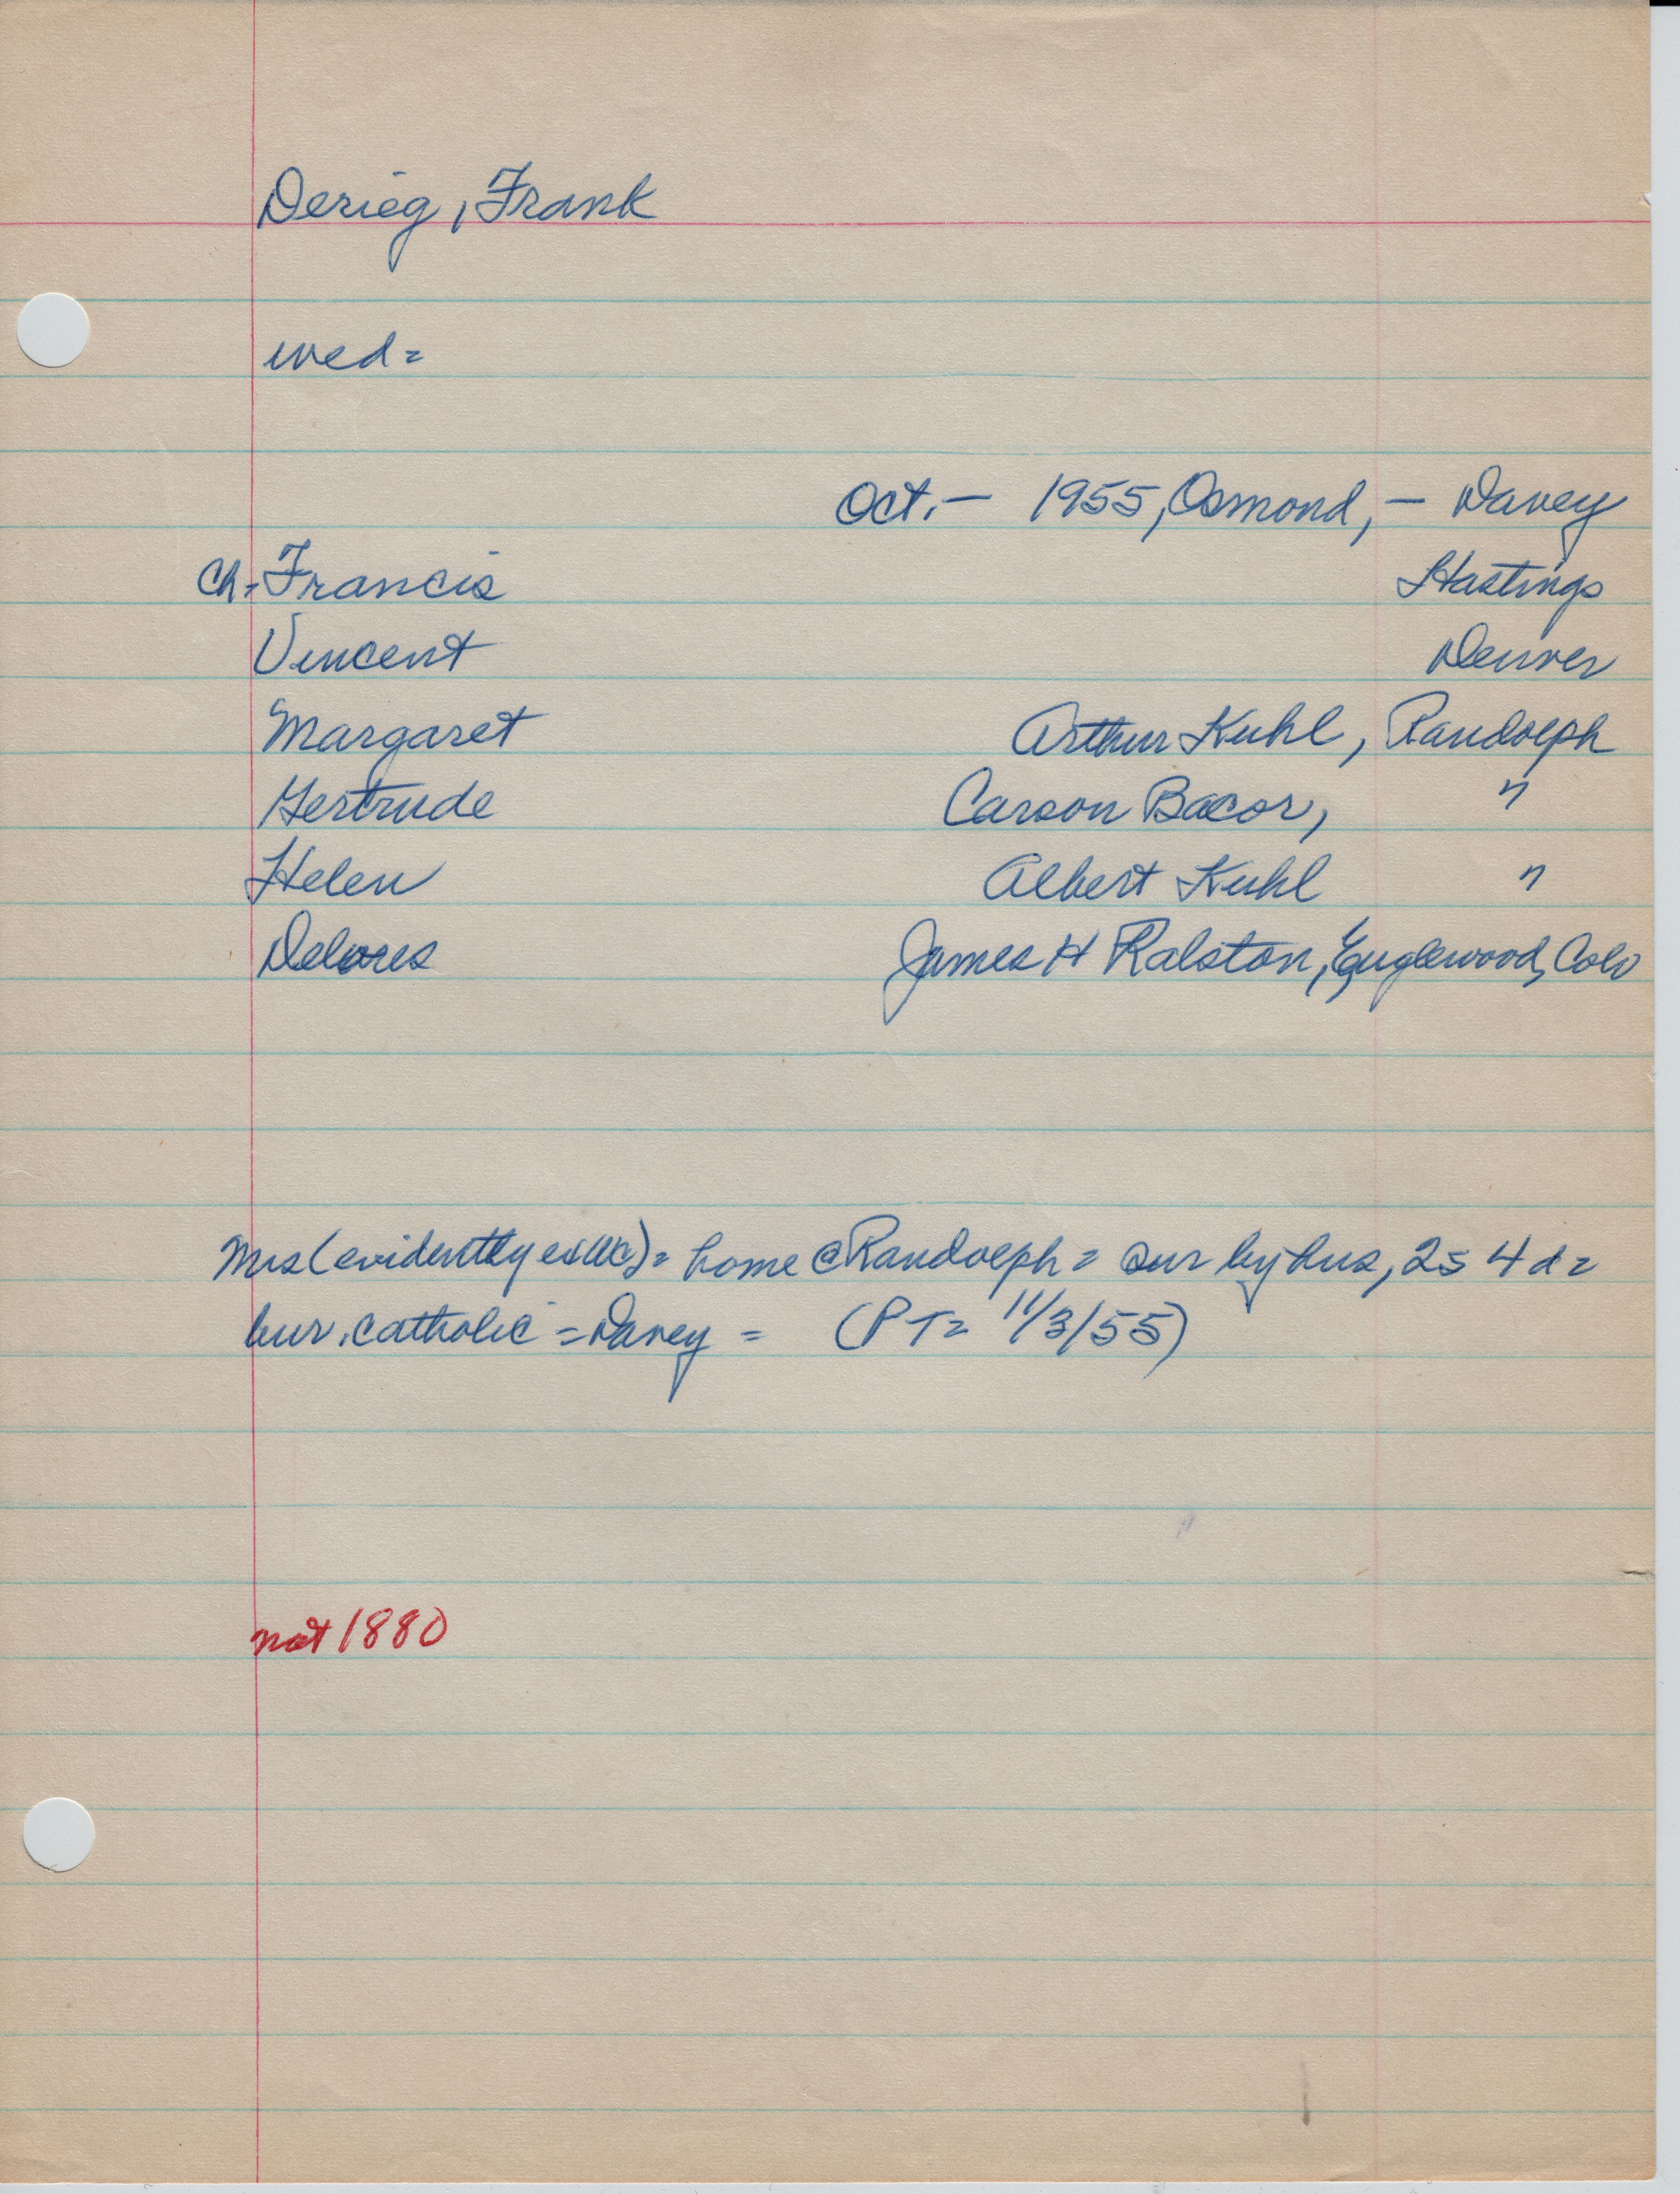 Derieg, Frank
wed=
Oct. — 1955, Osmond, — Davey
Ch. Francis Hastings
Vincent Denver
Margaret Arthur Kuhl, Randolph
Gertrude Carson Bacor, "
Helen Albert Kuhl "
Delores James H Ralston, Englewood, Colo
Mrs (evidently = home @ Randolph = sur by hus, 2s 4d =
bur. catholic = Davey = (PT= 11/3/55)
not 1880